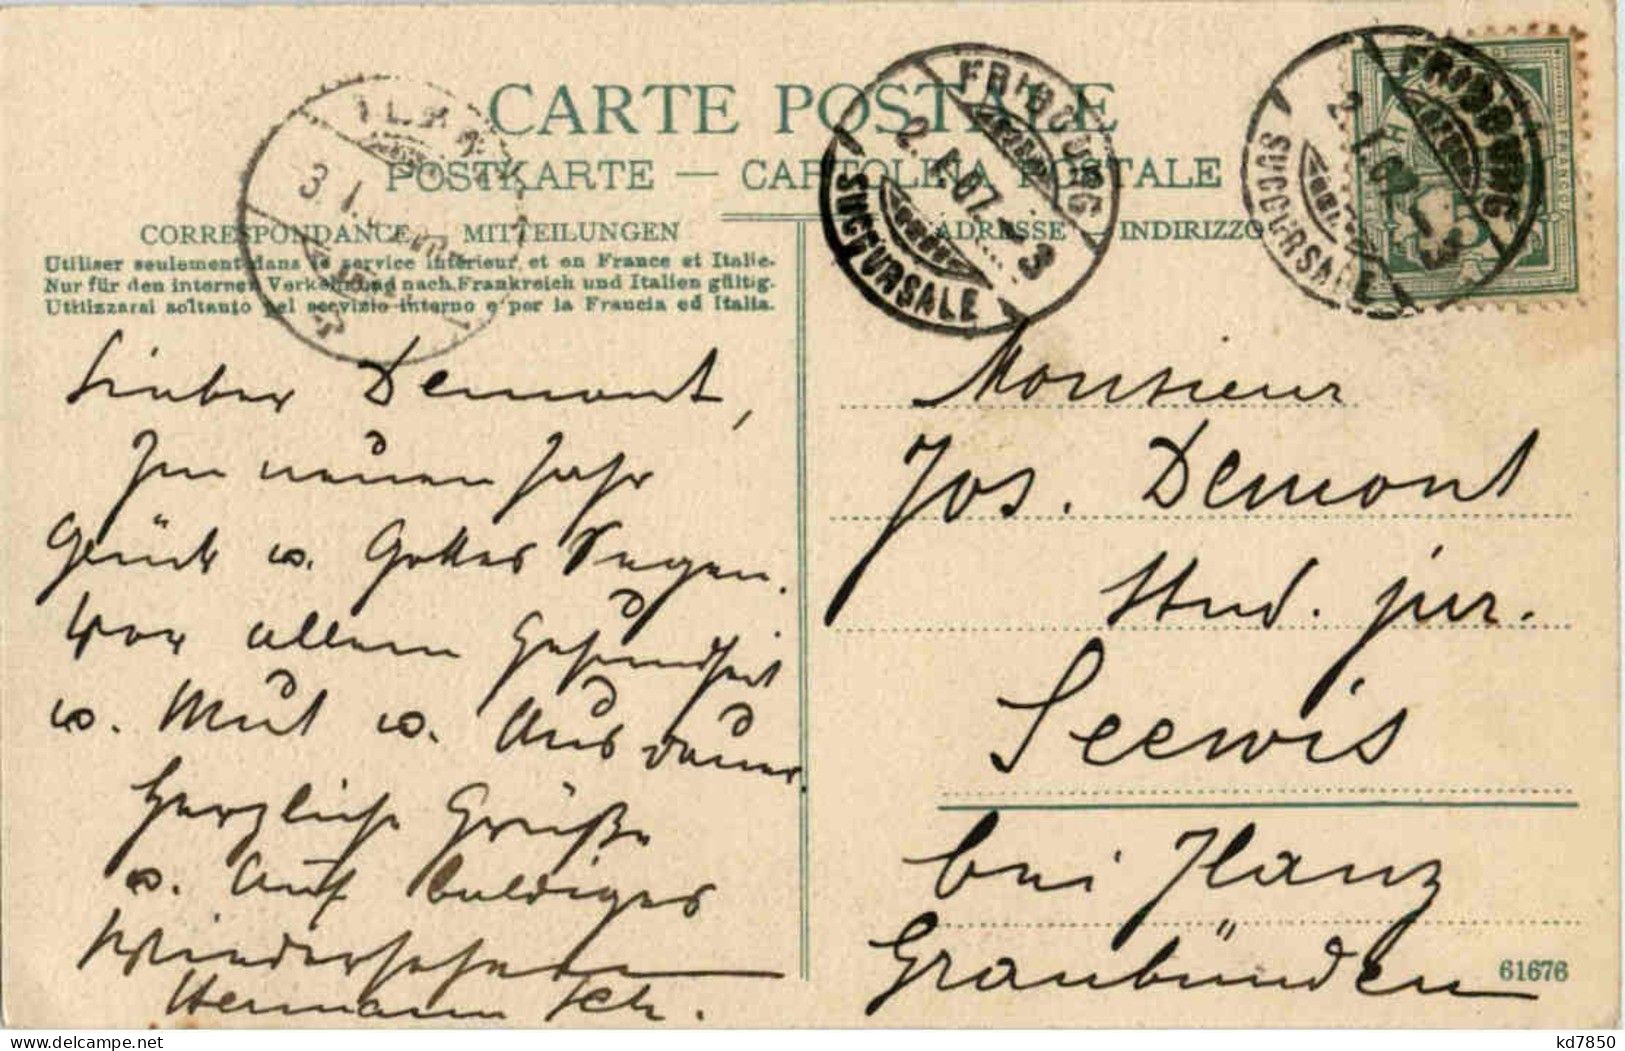 CARTE POSTALE
POSTKARTE — CARTOLINA POSTALE
CORRESPONDANCE — MITTEILUNGEN
Utiliser seulement dans le service intérieur et en France et Italie.
Nur für den internen Verkehr und nach Frankreich und Italien gültig.
Utilizzarsi soltanto pel servizio interno e per la Francia ed Italia.
ADRESSE — INDIRIZZO
FRIBOURG
2.I.07.–3
SUCCURSALE
FRIBOURG
2.I.07.–3
SUCCURSALE
3.I.
Lieber Demont,
Im neuen Jahr
Glück u. Gottes Segen.
Vor allem Gesundheit
u. Mut u. Ausdauer
Herzliche Grüße
u. Auf baldiges
Wiedersehen
Hermann
Monsieur
Jos. Demont
Stud. jur.
Seewis
bei Ilanz
Graubünden
61676
kd7850